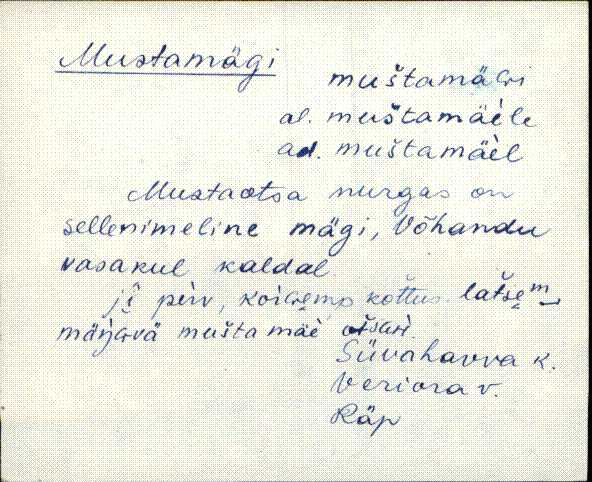 Mustamägi
muštamäGi
al. muštamäèle
ad. muštamäèl
Mustaotsa nurgas on
sellenimeline mägi, Võhandu
vasakul kaldal
kottus latse
mänGvä muštamäè
Süvahavva k.
Veriora v.
Räp